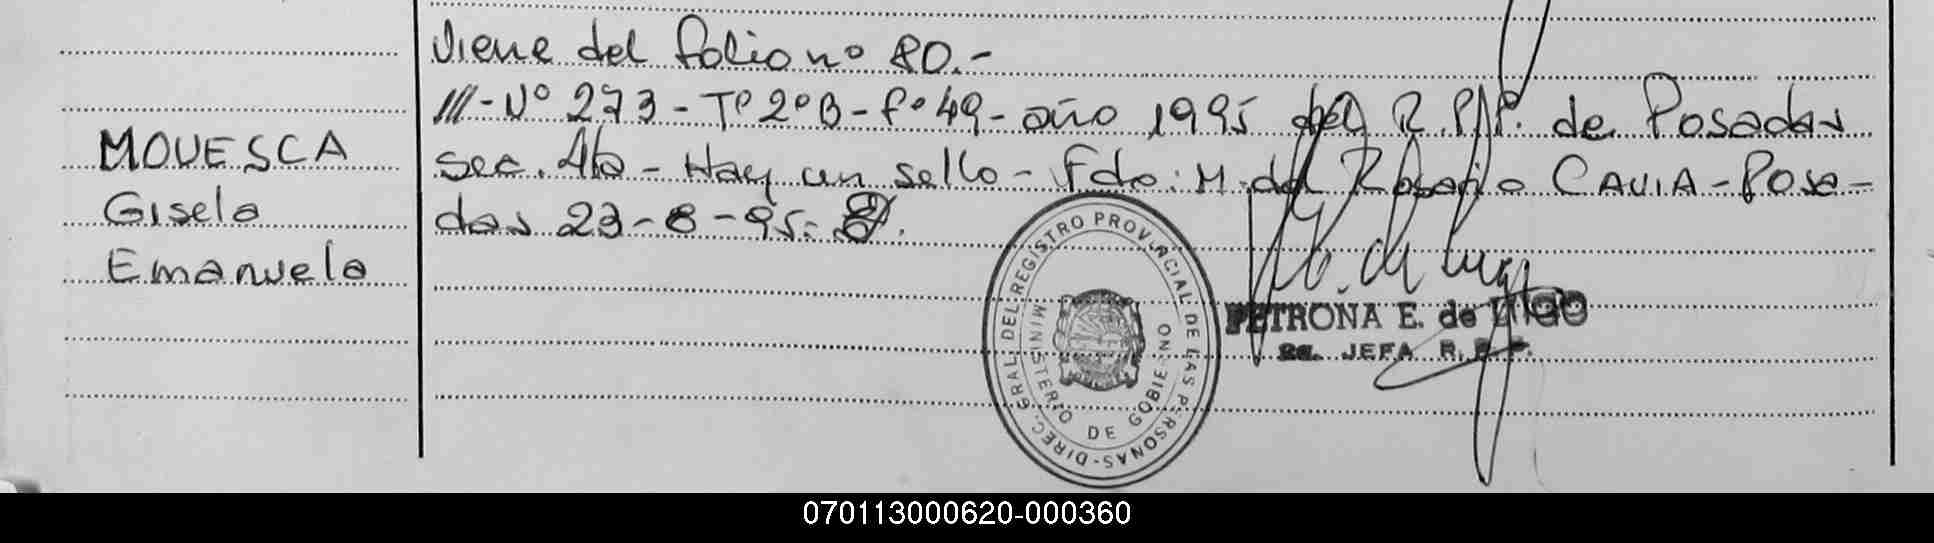 Viene del folio nº 80.-
///-Nº 273-Tº 2ºB-Fº 49-año 1995 del R.P.P. de Posadas
MOVESCA
Sec. 4ta-Hay un sello-Fdo: M. del Rosario CAVIA-Posa-
Gisela
das 23-8-95.
Emanuela
DIREC. GRAL. DEL REGISTRO PROVINCIAL DE LAS PERSONAS-
MINISTERIO DE GOBIERNO
PETRONA E. de LUGO
JEFA R.P.P.
070113000620-000360